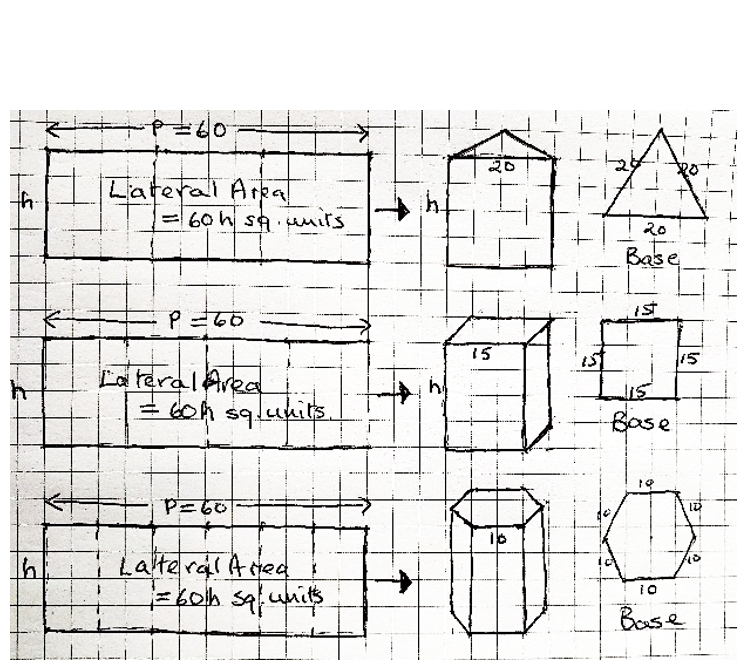 P = 60
h
Lateral Area
= 60h sq. units
h
20
20
20
20
Base
P = 60
h
Lateral Area
= 60h sq. units
h
15
15
15
15
15
Base
P = 60
h
Lateral Area
= 60h sq. units
10
10
10
10
10
10
10
Base